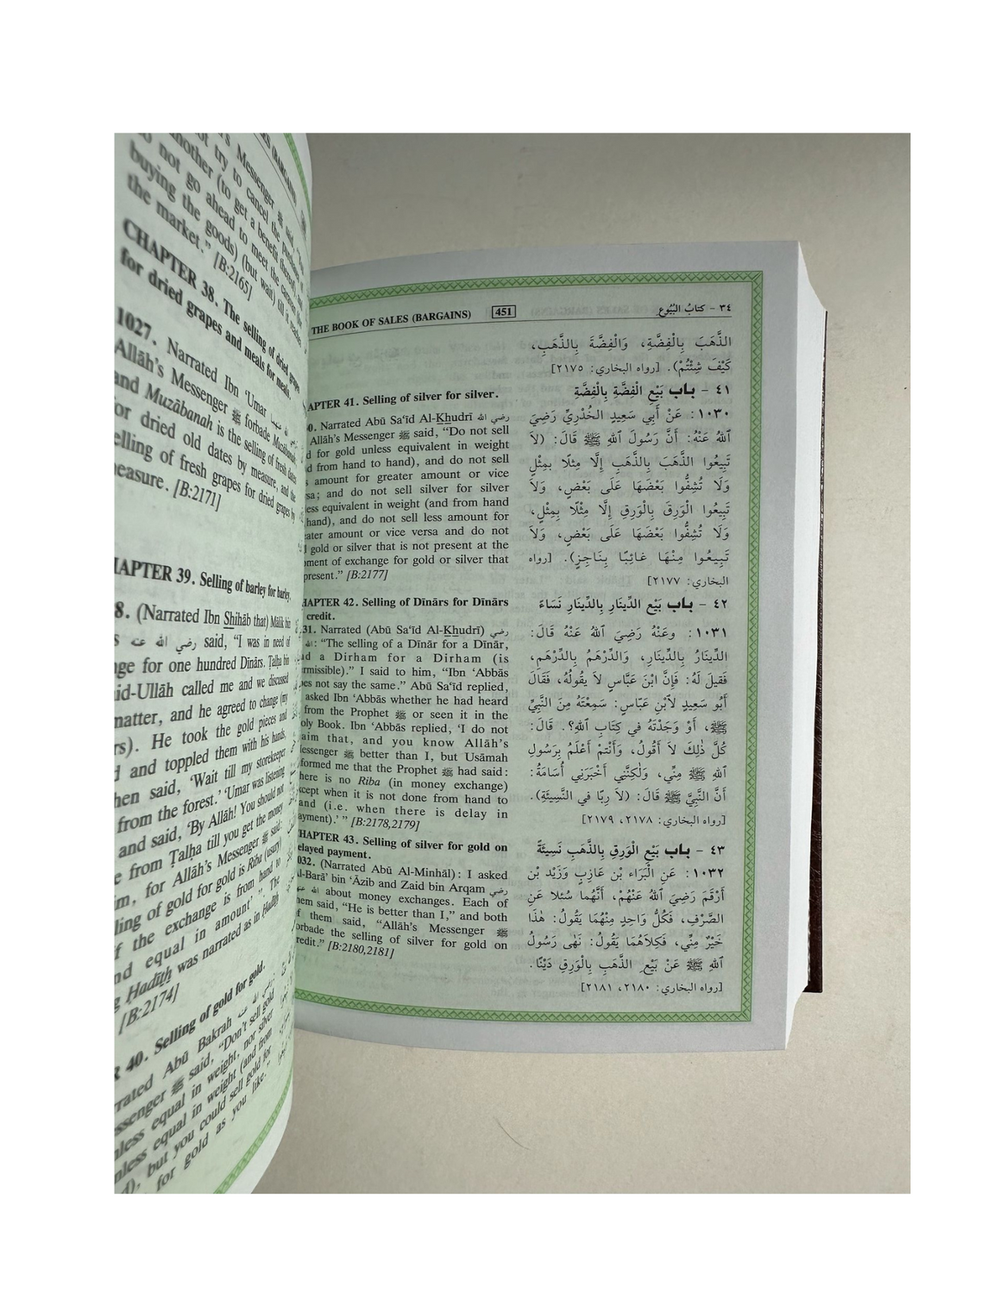 Messenger ﷺ said,
not try to cancel the purchases
another (to get a benefit thereof), and
do not go ahead to meet the caravan
buying the goods) (but wait) till it reaches
the market.” [B:2165]
CHAPTER 38. The selling of dried grapes
for dried grapes and meals for meals.
1027. Narrated Ibn ‘Umar
Allāh’s Messenger ﷺ forbade Muzābanah
and Muzābanah is the selling of fresh dates
for dried old dates by measure, and the
selling of fresh grapes for dried grapes by
measure. [B:2171]
HAPTER 39. Selling of barley for barley.
8. (Narrated Ibn Shihāb that) Mālik bin
s رضي الله عنه said, “I was in need of
nge for one hundred Dīnārs. Talḥa bin
aid-Ullāh called me and we discussed
matter, and he agreed to change (my
rs). He took the gold pieces and
d and toppled them with his hands,
hen said, ‘Wait till my storekeeper
from the forest.’ ‘Umar was listening
and said, ‘By Allāh! You should not
e from Ṭalḥa till you get the money
m, for Allāh’s Messenger ﷺ said:
ling of gold for gold is Riba (usury)
f the exchange is from hand to
nd equal in amount’.” The
g Ḥadīth was narrated as in Ḥadīth
[B:2174]
R 40. Selling of gold for gold.
rrated Abū Bakrah رضي الله عنه
ssenger ﷺ said, “Don’t sell gold
nless equal in weight, nor silver
nless equal in weight (and from
d), but you could sell gold for
for gold as you like.
THE BOOK OF SALES (BARGAINS) 451 ٣٤ – كتابُ البُيُوع
APTER 41. Selling of silver for silver.
0. Narrated Abū Sa‘īd Al-Khudrī رضي الله
Allāh’s Messenger ﷺ said, “Do not sell
d for gold unless equivalent in weight
d from hand to hand), and do not sell
amount for greater amount or vice
sa; and do not sell silver for silver
ess equivalent in weight (and from hand
hand), and do not sell less amount for
ater amount or vice versa and do not
gold or silver that is not present at the
ment of exchange for gold or silver that
present.” [B:2177]
HAPTER 42. Selling of Dīnārs for Dīnārs
credit.
31. Narrated (Abū Sa‘īd Al-Khudrī) رضي
الله: “The selling of a Dīnār for a Dīnār,
d a Dirham for a Dirham (is
rmissible).” I said to him, “Ibn ‘Abbās
es not say the same.” Abū Sa‘īd replied,
asked Ibn ‘Abbās whether he had heard
from the Prophet ﷺ or seen it in the
oly Book. Ibn ‘Abbās replied, ‘I do not
aim that, and you know Allāh’s
essenger ﷺ better than I, but Usāmah
formed me that the Prophet ﷺ had said:
here is no Riba (in money exchange)
cept when it is not done from hand to
and (i.e. when there is delay in
ayment).’ ” [B:2178,2179]
HAPTER 43. Selling of silver for gold on
elayed payment.
032. (Narrated Abū Al-Minhāl): I asked
Al-Barā’ bin ‘Āzib and Zaid bin Arqam رضي
الله about money exchanges. Each of
hem said, “He is better than I,” and both
f them said, “Allāh’s Messenger ﷺ
orbade the selling of silver for gold on
redit.” [B:2180,2181]
الذَّهَبَ بِالْفِضَّةِ، وَالْفِضَّةَ بِالذَّهَبِ،
كَيْفَ شِئْتُمْ). [رواه البخاري: ٢١٧٥]
٤١ – باب بَيْعِ الْفِضَّةِ بِالْفِضَّةِ
١٠٣٠: عَنْ أَبِي سَعِيدٍ الخُدْرِيِّ رَضِيَ
اللهُ عَنْهُ: أَنَّ رَسُولَ اللهِ ﷺ قَالَ: (لاَ
تَبِيعُوا الذَّهَبَ بِالذَّهَبِ إِلَّا مِثْلًا بِمِثْلٍ
وَلَا تُشِفُّوا بَعْضَهَا عَلَى بَعْضٍ، وَلَا
تَبِيعُوا الْوَرِقَ بِالْوَرِقِ إِلَّا مِثْلًا بِمِثْلٍ،
وَلَا تُشِفُّوا بَعْضَهَا عَلَى بَعْضٍ، وَلَا
تَبِيعُوا مِنْهَا غَائِبًا بِنَاجِزٍ). [رواه
البخاري: ٢١٧٧]
٤٢ – باب بَيْعِ الدِّينَارِ بِالدِّينَارِ نَسَاءً
١٠٣١: وعَنْهُ رَضِيَ اللهُ عَنْهُ قَالَ:
الدِّينَارُ بِالدِّينَارِ، وَالدِّرْهَمُ بِالدِّرْهَمِ،
فَقِيلَ لَهُ: فَإِنَّ ابْنَ عَبَّاسٍ لاَ يقُولُهُ، فَقَالَ
أَبُو سَعِيدٍ لاِبْنِ عَبَّاسٍ: سَمِعْتَهُ مِنَ النَّبِيِّ
ﷺ، أَوْ وَجَدْتَهُ في كِتَابِ اللهِ؟. قَالَ:
كُلَّ ذٰلِكَ لاَ أَقُولُ، وَأَنْتُمْ أَعْلَمُ بِرَسُولِ
اللهِ ﷺ مِنِّي، وَلٰكِنَّنِي أَخْبَرَنِي أُسَامَةُ:
أَنَّ النَّبِيَّ ﷺ قَالَ: (لاَ رِبًا في النَّسِيئَةِ).
[رواه البخاري: ٢١٧٨، ٢١٧٩]
٤٣ – باب بَيْعِ الْوَرِقِ بِالذَّهَبِ نَسِيئَةً
١٠٣٢: عَنِ الْبَرَاءِ بْنِ عَازِبٍ وَزَيْدِ بْنِ
أَرْقَمَ رَضِيَ اللهُ عَنْهُمْ، أَنَّهُما سُئلا عَنِ
الصَّرْفِ، فَكُلُّ وَاحِدٍ مِنْهُمَا يَقُولُ: هٰذَا
خَيْرٌ مِنِّي، فَكِلاَهُمَا يَقُولُ: نَهٰى رَسُولُ
اللهِ ﷺ عَنْ بَيْعِ الذَّهَبِ بِالْوَرِقِ دَيْنًا.
[رواه البخاري: ٢١٨٠، ٢١٨١]